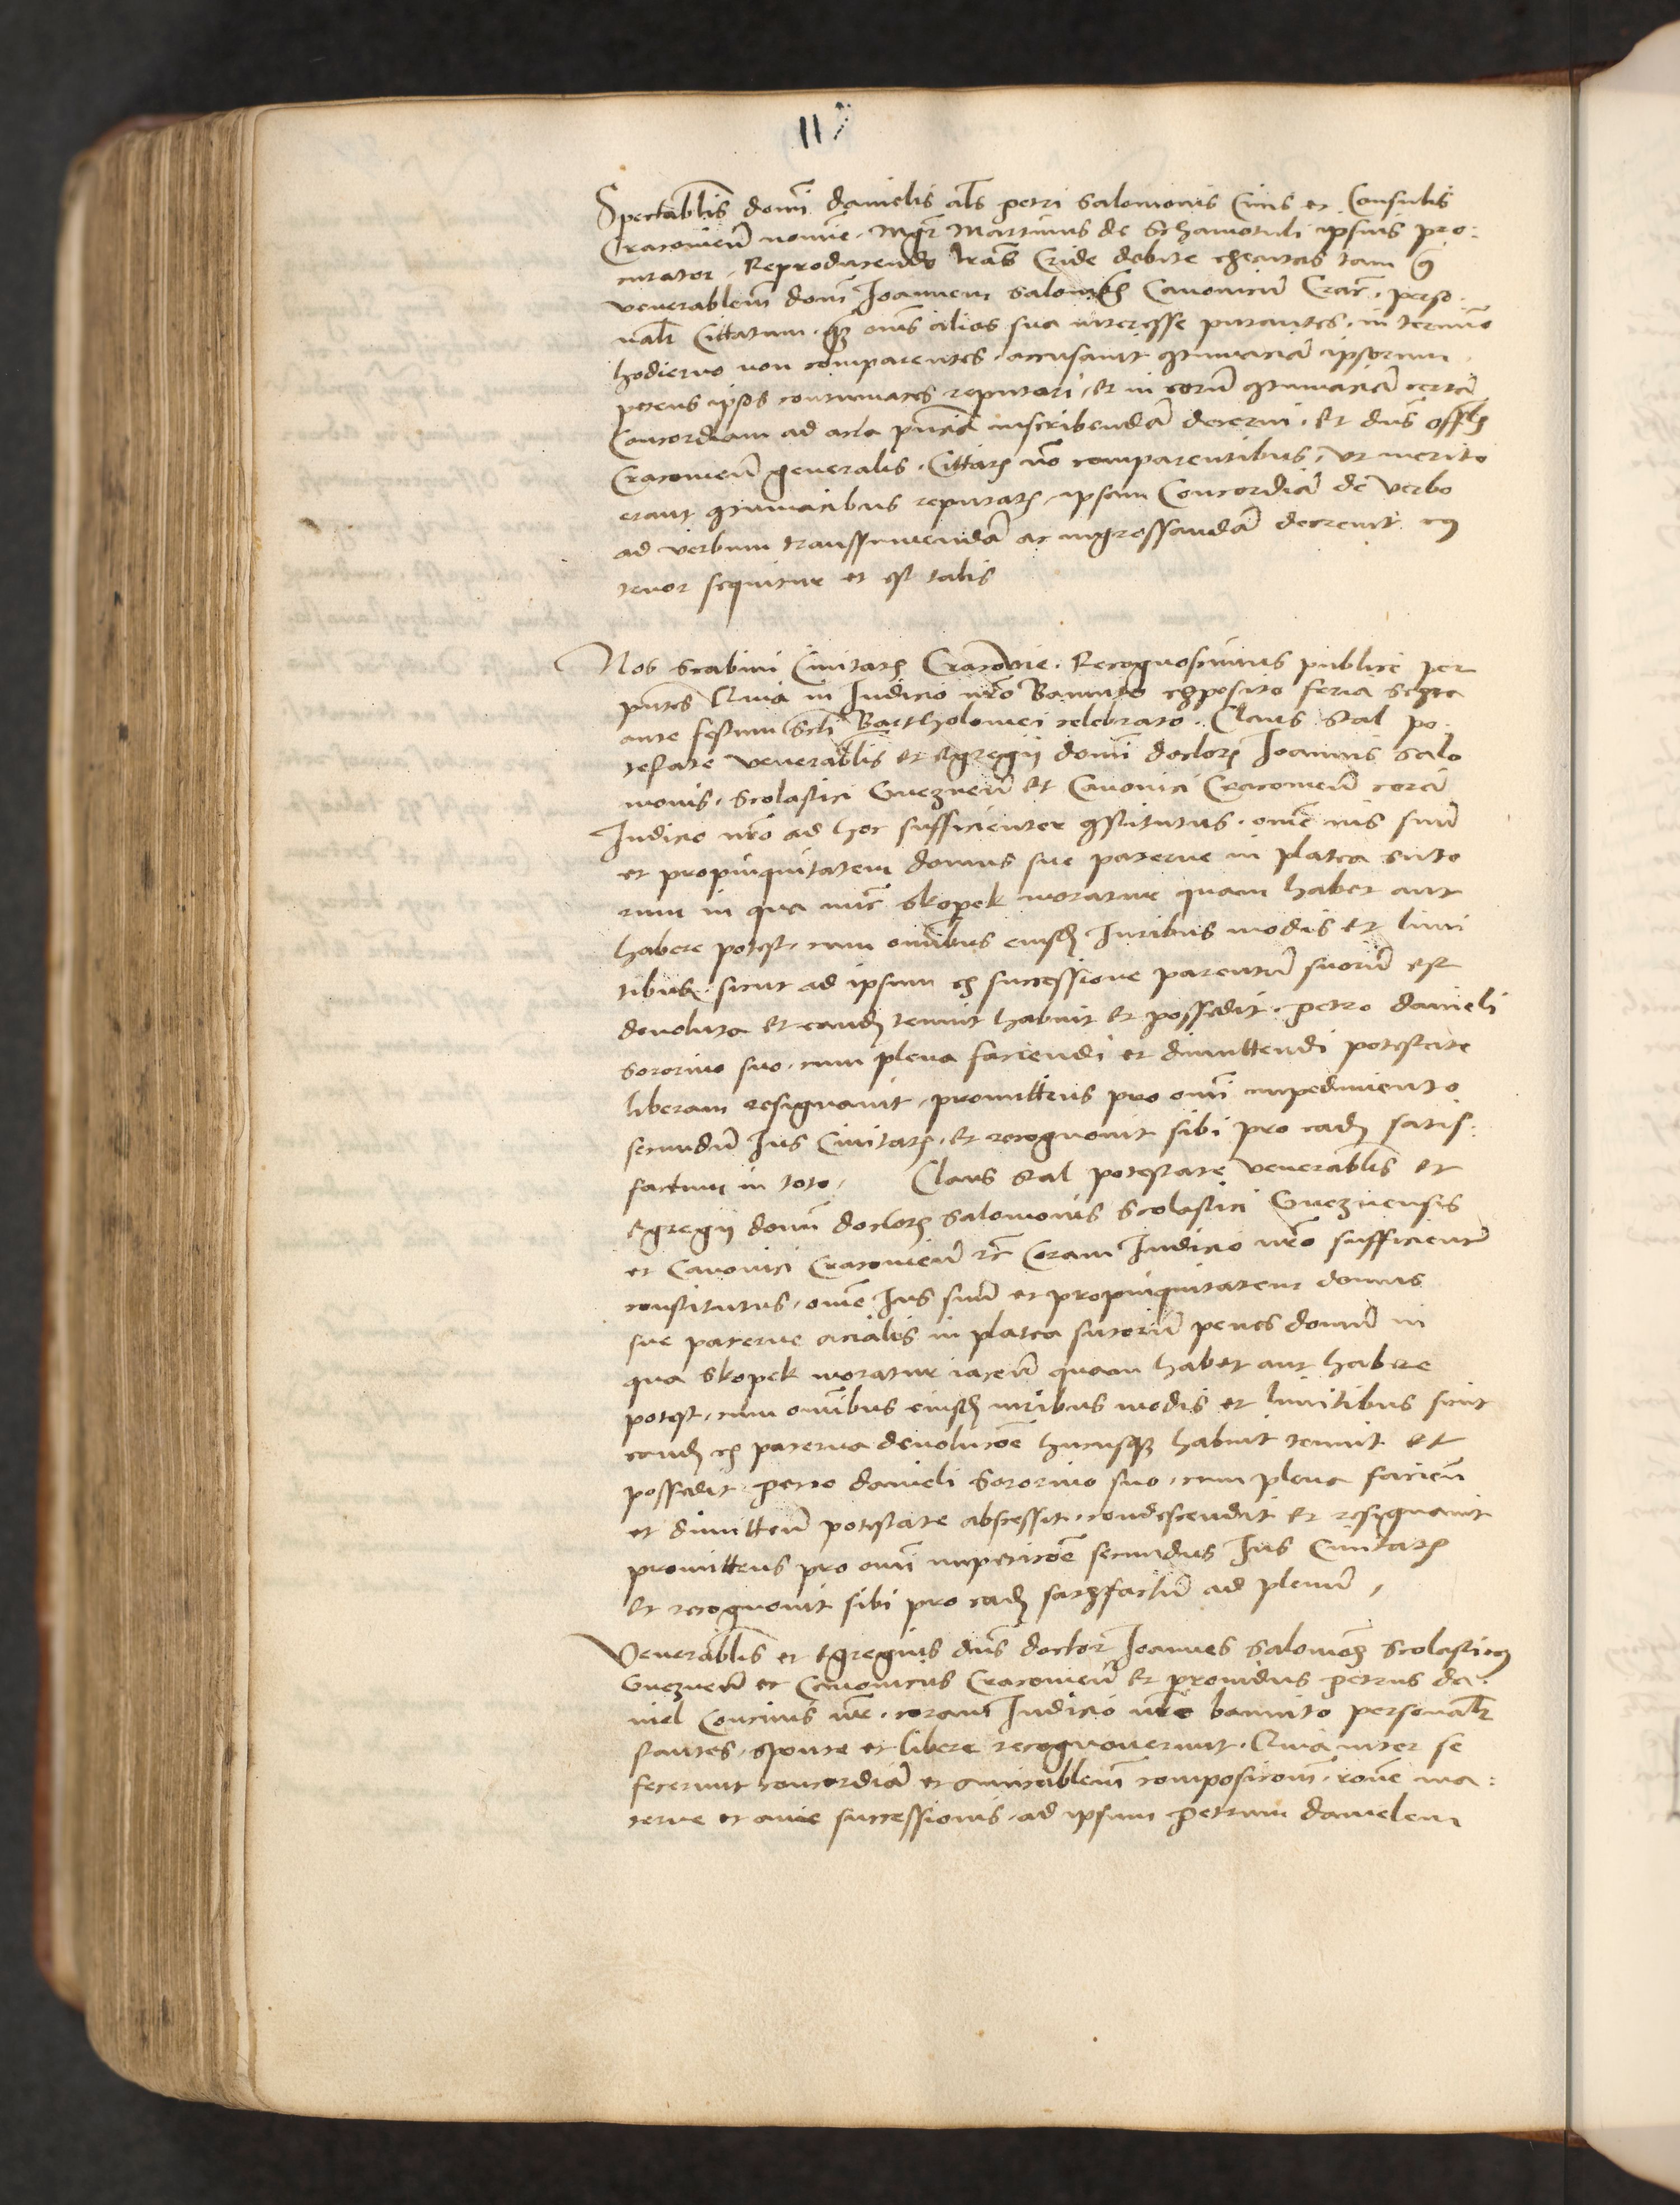 117
Spectabĺis domī danielis als petri salomonis Civis et Consulis
Cracovień nomine. Mgr̃ Martinus de Schamotuli ipsius pro:
curator. Reproducendo lrãs Cride debite executas tam 9ͣ
venerablem̃ domī Joannem salomōis Canonicū Crac̃. perso
naĺr Cittatum. q̃ om̃s alios sua interesse putantes. in termīo
hodierno non comparentes. accusavit 9tumaciā ipsorum
petens ipsos contumaces reputari. et in eorū 9tumaciā certā
Concordiam ad acta pñcia inscribendā decerni. Et dñs offĺis
Cracovień generalis. Cittatis nō comparentibus. ut merito
erant 9tumacibus reputatis. ipsam Concordiā de verbo
ad verbum transsumendā ac ingrossandā decrevit cuius
tenor sequitur et est talis
Nos scabini Civitatis Cracovie. Recognoscimus publice per
pñtes Quia in Iudicio nr̃o Bannito exposito feria sexta
ante festum Scti Bartholomei celebrato. Claus Stal po.
testate venerablis et Egregii domī doctoris Joannis salo
monis. Scolastici Gneznēn et Canonici Cracovień corā
Iudicio nr̃o ad hoc sufficienter 9stitutus. om̃e ius suū
et propinquitatem domus sue paterne in platea suto
rum in qua nūc Skopek moratur quam habet aut
habere potest. cum om̃ibus eiusd̃ Iuribus modis et limi
tibus. sicut ad ipsum ex successione parentū suorū est
devoluta et eand̃ tenuit habuit et possedit. petro danieli
sororino suo. cum plena faciendi et dimittendi potestate
liberam resignavit. promittens pro om̃i impedimento
secundū Ius Civitatis. et recognovit sibi pro ead̃ satis:
factum in toto. Claus Stal potestate venerablis et
Egregii domī doctoris salomonis Scolastici Gneznensis
et Canonici Cracovień rc̃ Coram Iudicio nr̃o sufficient̃
constitutus. om̃e Ius suū et propinquitatem domus
sue paterne acialis in platea sutorū penes domū in
qua Skopek moratur iaceñ quam habet aut habere
potest. cum om̃ibus eiusd̃ iuribus modis et limitibus sicut
eand̃ ex paterna devolucōe hucusq̃ habuit tenuit et
possedit petro danieli Sororino suo. cum plena facień
et dimitteñ potestate abscessit. condescendit et resignavit
promittens pro om̃i impeticōe secundus Ius Civitatis
et recognovit sibi pro ead̃ satisfactū ad plenū.
Venerablis et Egregius dñs doctor Joannes salomōis Scolasticus
Gneznēn et Canonicus Cracovień et providus petrus da:
niel Concivis nr̃. coram Iudicio nr̃o bannito personaĺr
stantes. sponte et libere recognoverunt. Quia inter se
fecerunt concordiā et amicablem̃ composicōm. rōne ma:
terne et avie successionis. ad ipsum petrum danielem